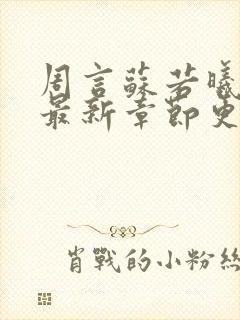 周言蘇若曦
最新章節更
肖戰的小粉絲